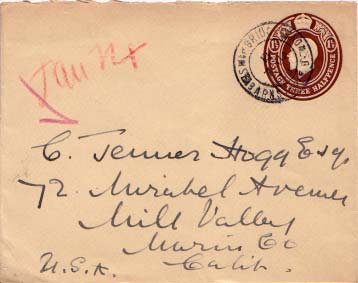 POSTAGE THREE HALFPENCE
C. Jenner Hogg Esq.
72 Mirabel Avenue
Mill Valley
Marin Co
U.S.A. Calif.